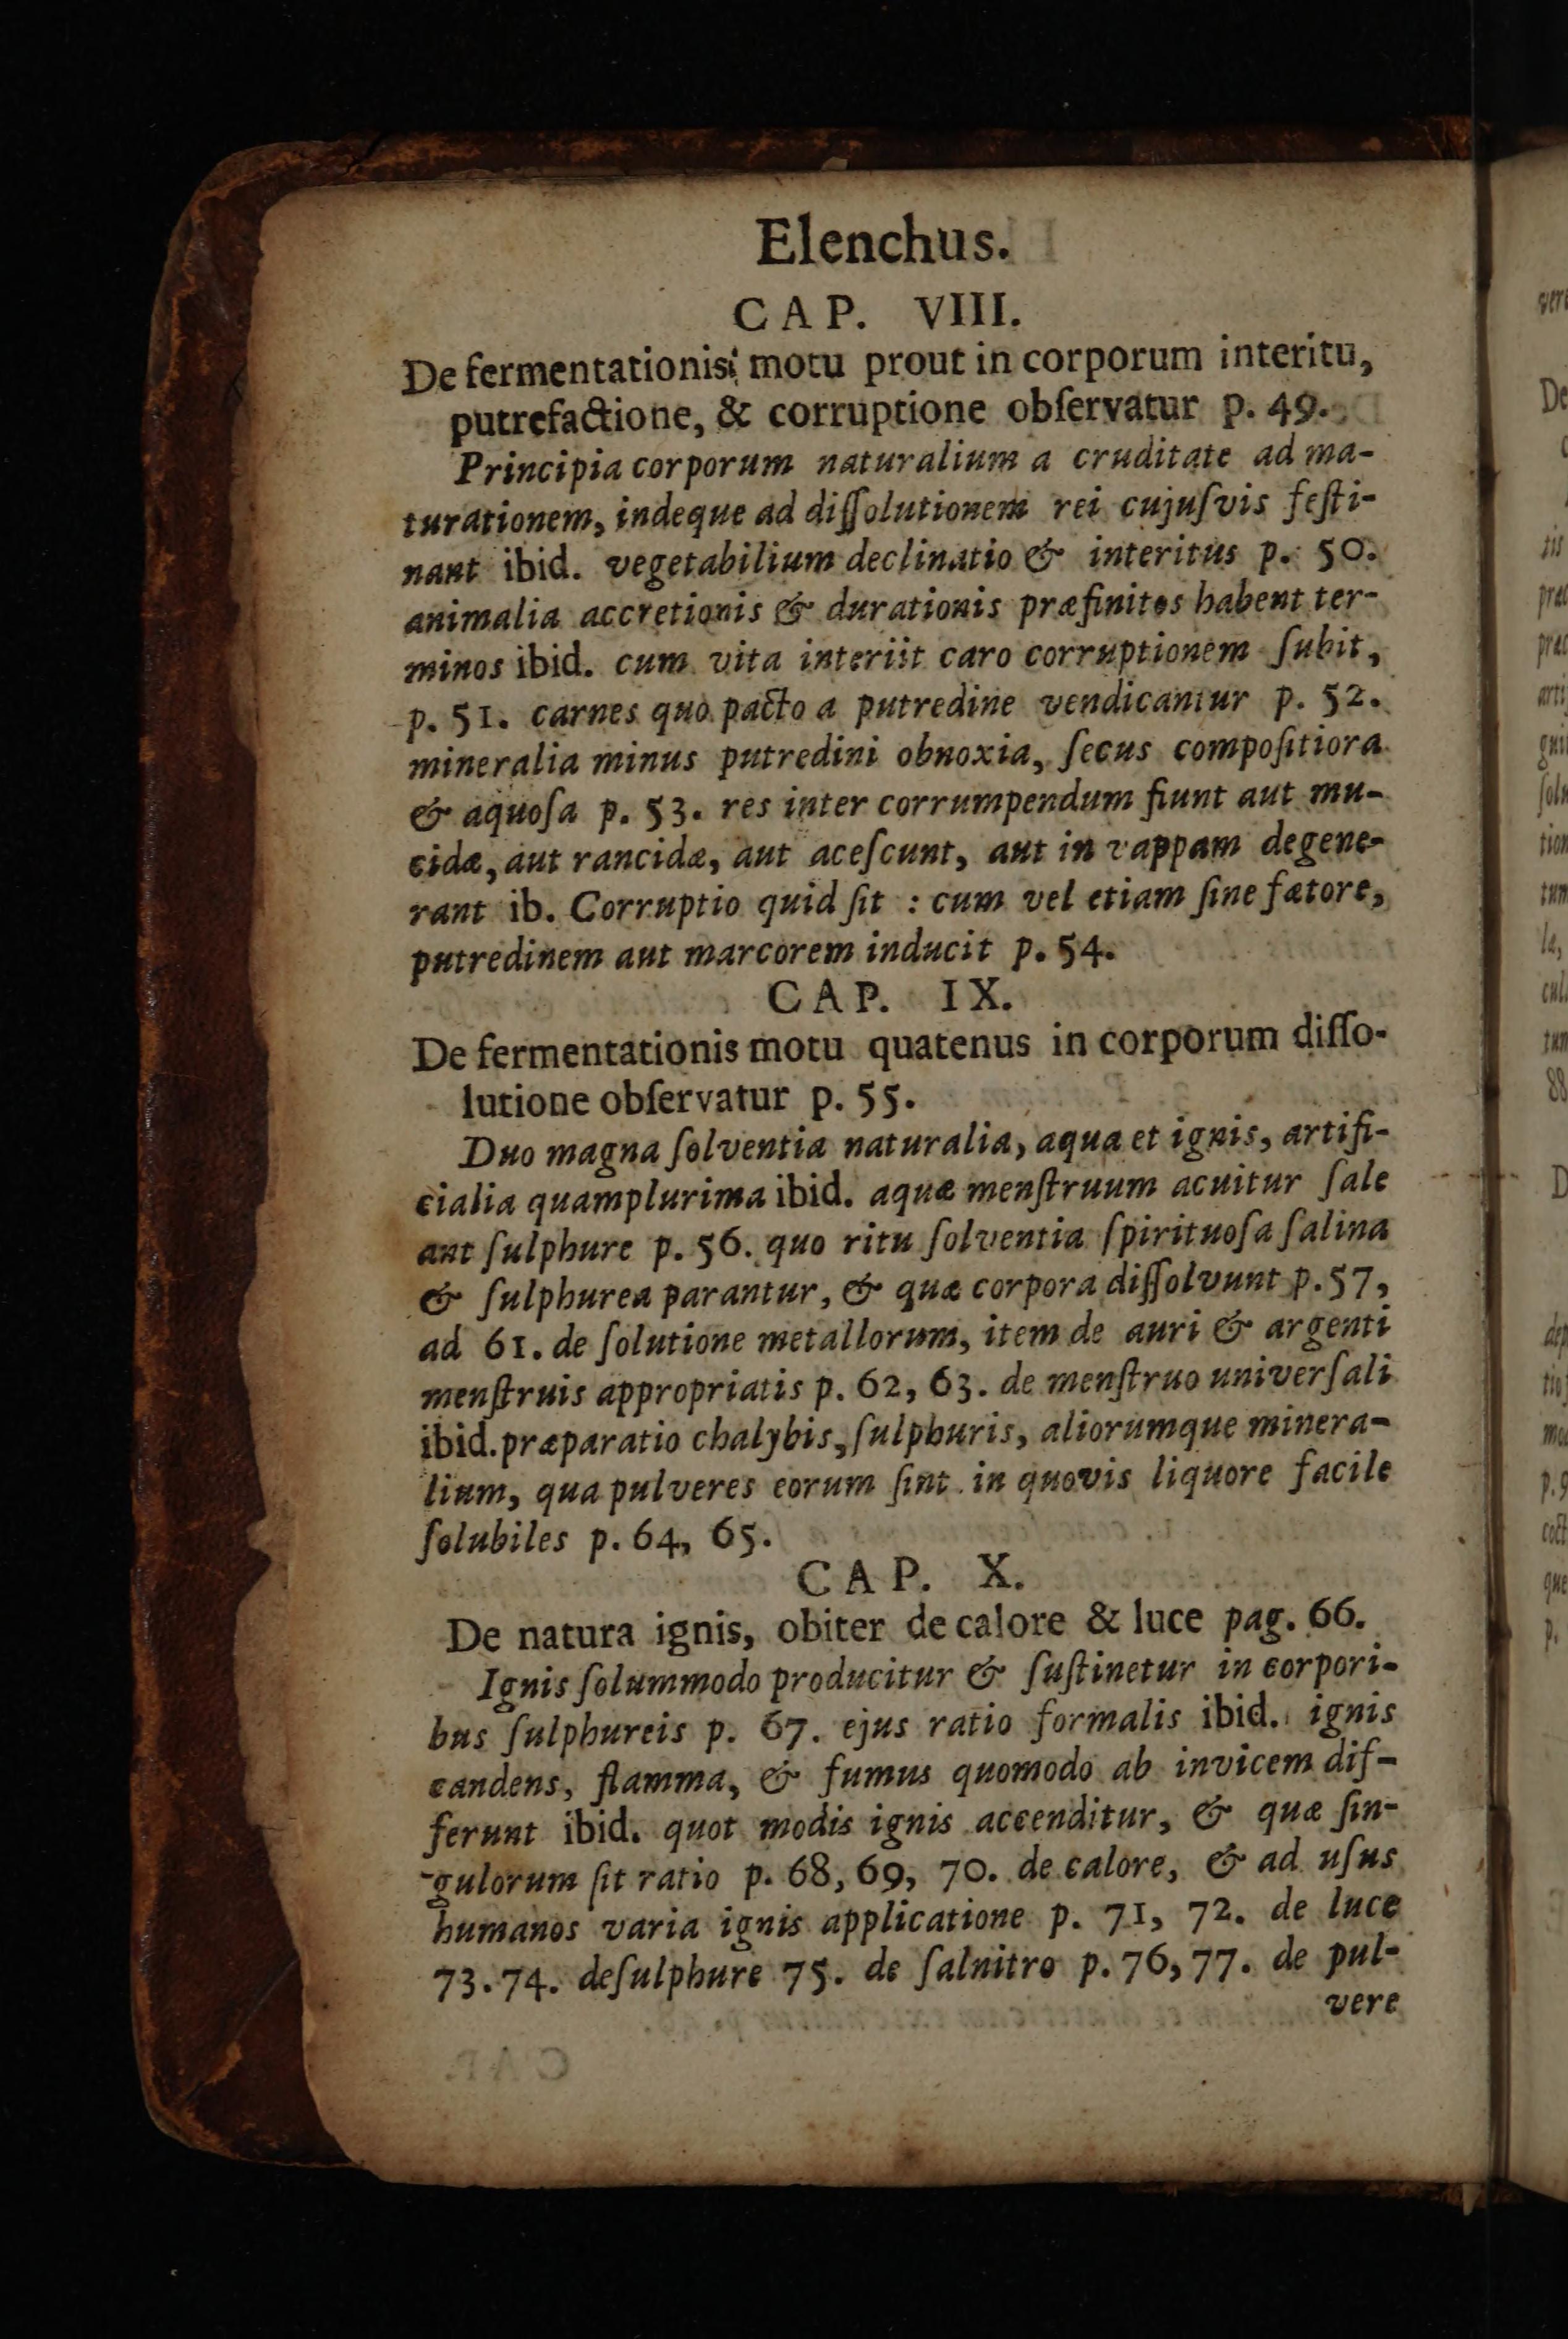 Elenchus.
CAP. VIII.
De fermentationis motu prout in corporum interitu,
putrefactione, & corruptione obſervatur p. 49.
Principia corporum naturalium a cruditate ad ma-
turationem, indeque ad diſſolutionem rei cujuſvis feſti-
nant ibid. vegetabilium declinatio & interitus p. 50.
animalia accretionis & durationis præfinitos habent ter-
minos ibid. cum vita interiit caro corruptionem ſubit,
p. 51. carnes quo pacto a putredine vendicantur p. 52.
mineralia minus putredini obnoxia, ſecus compoſitiora
& aquoſa p. 53. res inter corrumpendum fiunt aut mu-
cidæ, aut rancidæ, aut aceſcunt, aut in vappam degene-
rant ib. Corruptio quid ſit : cum vel etiam ſine fætore,
putredinem aut marcorem inducit p. 54.
CAP. IX.
De fermentationis motu quatenus in corporum diſſo-
lutione obſervatur p. 55.
Duo magna ſolventia naturalia, aqua et ignis, artifi-
cialia quamplurima ibid. aquæ menſtruum acuitur ſale
aut ſulphure p. 56. quo ritu ſolventia ſpirituoſa ſalina
& ſulphurea parantur, & quæ corpora diſſolvunt p. 57,
ad 61. de ſolutione metallorum, item de auri & argenti
menſtruis appropriatis p. 62, 63. de menſtruo univerſali
ibid. præparatio chalybis, ſulphuris, aliorumque minera-
lium, qua pulveres eorum ſint in quovis liquore facile
ſolubiles p. 64, 65.
CAP. X.
De natura ignis, obiter de calore & luce pag. 66.
Ignis ſolummodo producitur & ſuſtinetur in corpori-
bus ſulphureis p. 67. ejus ratio formalis ibid. ignis
candens, flamma, & fumus quomodo ab invicem dif-
ferunt ibid. quot modis ignis accenditur, & quæ ſin-
gulorum ſit ratio p. 68, 69, 70. de calore, & ad uſus
humanos varia ignis applicatione p. 71, 72. de luce
73. 74. de ſulphure 75. de ſalnitro p. 76, 77. de pul-
vere